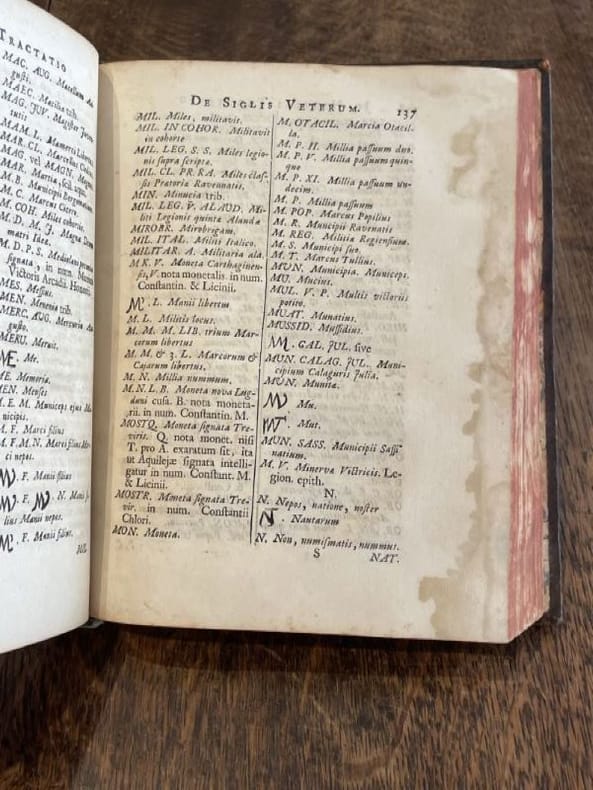 TRACTATIO
MAC. AUG. Macellum Au-
gusti.
MAEC. Maecia trib.
MAG. JUV. Magister Juven-
tutis
MAM. L. Mamerci Libertus
MAR. CL. Marcellus Clarus
MAG. vel MAGN. Magnus
MAR. Martia, scil. aqua
M. B. Municipii Bergomatum
M. C. Marcus Cicero
M. COH. Miles cohortis
M. D. M. J. Magna Deum
matri Idaea.
M. D. P. S. Mediolani pecunia
signata, in num. Marini
Victoris Arcadii, Honorii
MES. Messius.
MEN. Menenia trib.
MERC. AUG. Mercurio Au-
gusto.
MERU. Meruit.
ME. Me.
ME. Memoria.
MEN. Menses
M. E. M. Municeps ejus Mu-
nicipii.
M. F. Marci filius
M. F. M. N. Marci filius Mar-
ci nepos.
M. F. Manii filius
M. F. M. N. Manii fi-
lius Manii nepos.
M. F. Manii filius.
MIL
DE SIGLIS VETERUM. 137
MIL. Miles, militavit.
MIL. IN COHOR. Militavit
in cohorte
MIL. LEG. S. S. Miles legio-
nis supra scripta.
MIL. CL. PR. RA. Miles clas-
sis Pratoria Ravennatis.
MIN. Minucia trib.
MIL. LEG. V. ALAUD. Mi-
liti Legionis quinta Alauda
MIROBR. Mirobrigam.
MIL. ITAL. Militi Italico.
MILITAR. A. Militaria ala.
M K. V. Moneta Carthaginen-
sis, V. nota monetalis in num.
Constantin. & Licinii.
M. L. Manii libertus
M. L. Militis locus.
M. M. M. LIB. trium Mar-
corum libertus
M. M. & Ʒ. L. Marcorum &
Cajarum libertus.
M. N. Millia nummum.
M. N. L. B. Moneta nova Lug-
duni cusa. B. nota moneta-
rii. in num. Constantin. M.
MOSTQ. Moneta signata Tre-
viris. Q. nota monet. nisi
T. pro A. exaratum sit, ita
ut Aquilejæ signata intelli-
gatur in num. Constant. M.
& Licinii.
MOSTR. Moneta signata Tre-
vir. in num. Constantii
Chlori.
MON. Moneta.
M. OTACIL. Marcia Otacil-
la.
M. P. II. Millia passuum duo.
M. P. V. Millia passuum quin-
que
M. P. XI. Millia passuum un-
decim.
M. P. Millia passuum
M. POP. Marcus Popilius
M. R. Muncipii Ravenatis
M. REG. Militia Regiensium.
M. S. Municipi suo.
M. T. Marcus Tullius.
MUN. Municipia. Municeps.
MU. Mucius.
MUL. V. P. Multis victoriis
potito.
MUAT. Munatius.
MUSSID. Mussidius.
M. GAL. JUL. sive
MUN. CALAG. JUL. Muni-
cipium Calaguris Julia.
MUN. Munita.
Mu.
. Mut.
MUN. SASS. Municipii Sassi-
natium.
M. V. Minerva Victricis. Le-
gion. epith.
N.
N. Nepos, natione, noster
N. Nantarum
N. Non, numismatis, nummus.
S NAT.